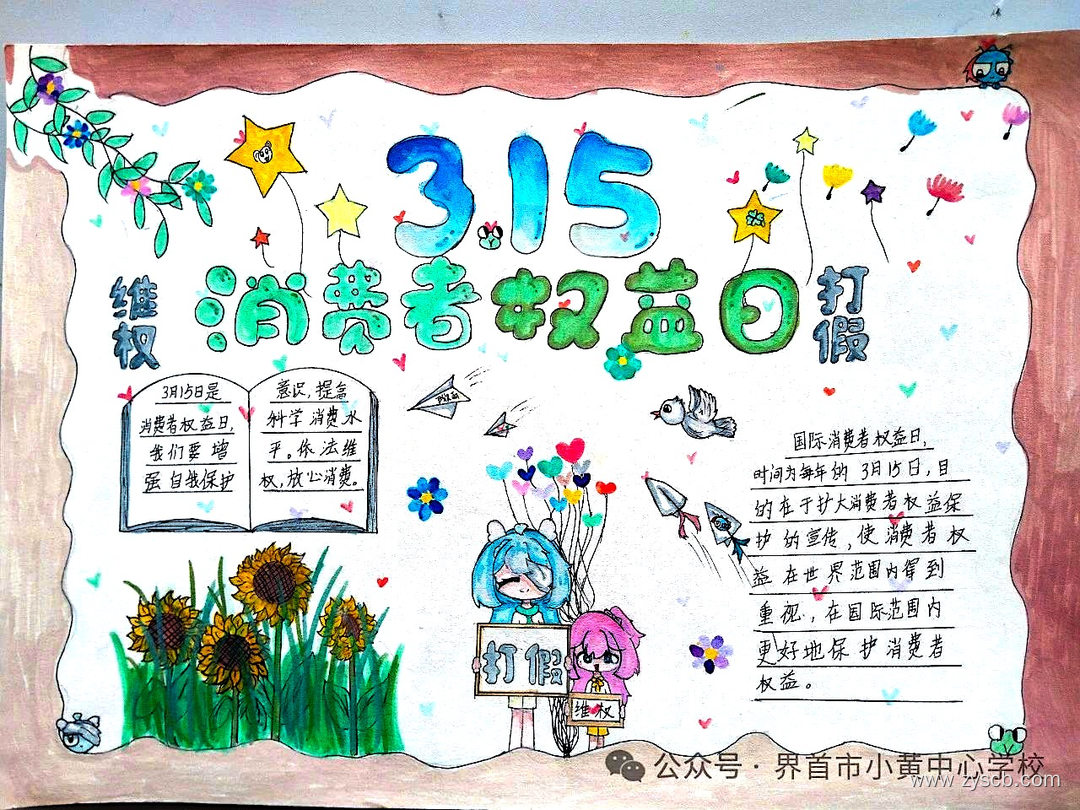 3.15
消费者权益日
维权
打假
3月15日是
消费者权益日,
我们要增
强自我保护
意识,提高
科学消费水
平。依法维
权,放心消费。
国际消费者权益日,
时间为每年的3月15日,目
的在于扩大消费者权益保
护的宣传,使消费者权
益在世界范围内得到
重视,在国际范围内
更好地保护消费者
权益。
打假
维权
公众号·界首市小黄中心学校
www.zyscb.com